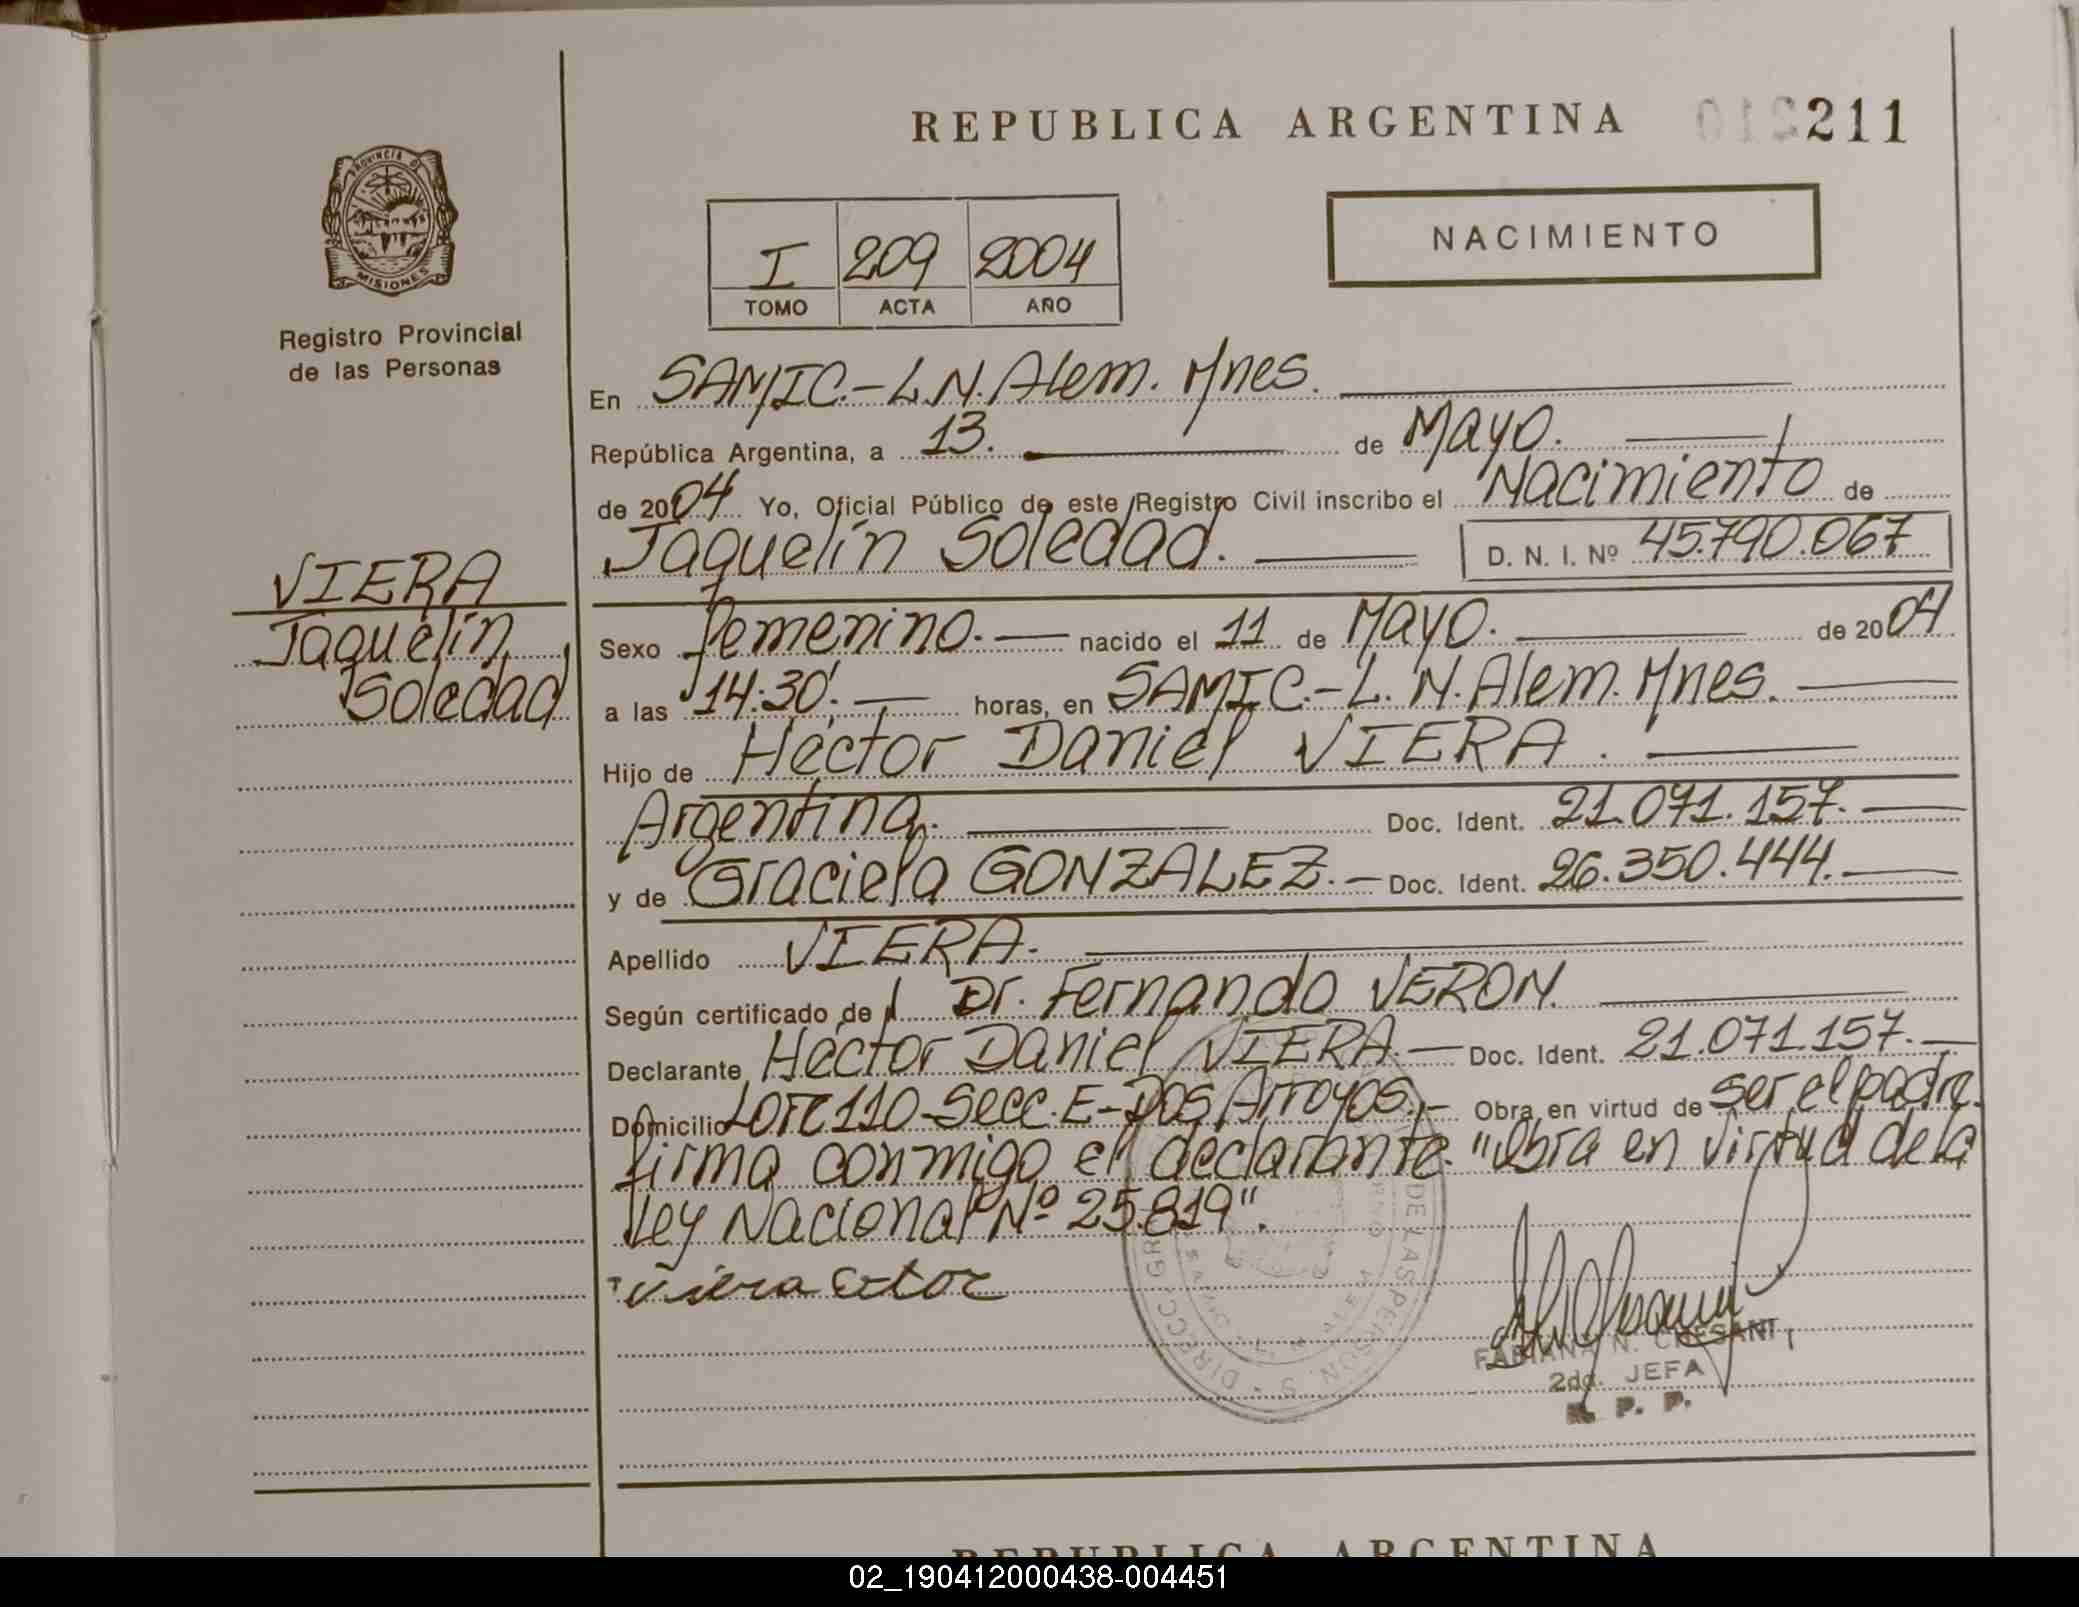 REPUBLICA ARGENTINA 211
PROVINCIA DE
MISIONES
Registro Provincial
de las Personas
I 209 2004
TOMO ACTA AÑO
NACIMIENTO
En SAMIC.-L.N.Alem. Mnes.
República Argentina, a 13. de Mayo.
de 2004 Yo, Oficial Público de este Registro Civil inscribo el Nacimiento de
Jaquelín Soledad. D. N. I. Nº 45.790.067
VIERA
Jaquelín
Soledad
Sexo femenino. nacido el 11 de Mayo. de 2004
a las 14:30'. horas, en SAMIC.-L.N.Alem. Mnes.
Hijo de Héctor Daniel VIERA.
Argentina. Doc. Ident. 21.071.157.
y de Graciela GONZALEZ. Doc. Ident. 26.350.444.
Apellido VIERA.
Según certificado de Dr. Fernando VERON.
Declarante Héctor Daniel VIERA. Doc. Ident. 21.071.157.
Domicilio Lote 110-Secc.E-Dos Arroyos. Obra en virtud de ser el padre.
firma conmigo el declarante. "Obra en virtud de la
Ley Nacional Nº 25.819".
Viera Ector
DE LAS PERSON
FABIANA N. CRESANI
2da. JEFA
R. P. P.
REPUBLICA ARGENTINA
02_190412000438-004451